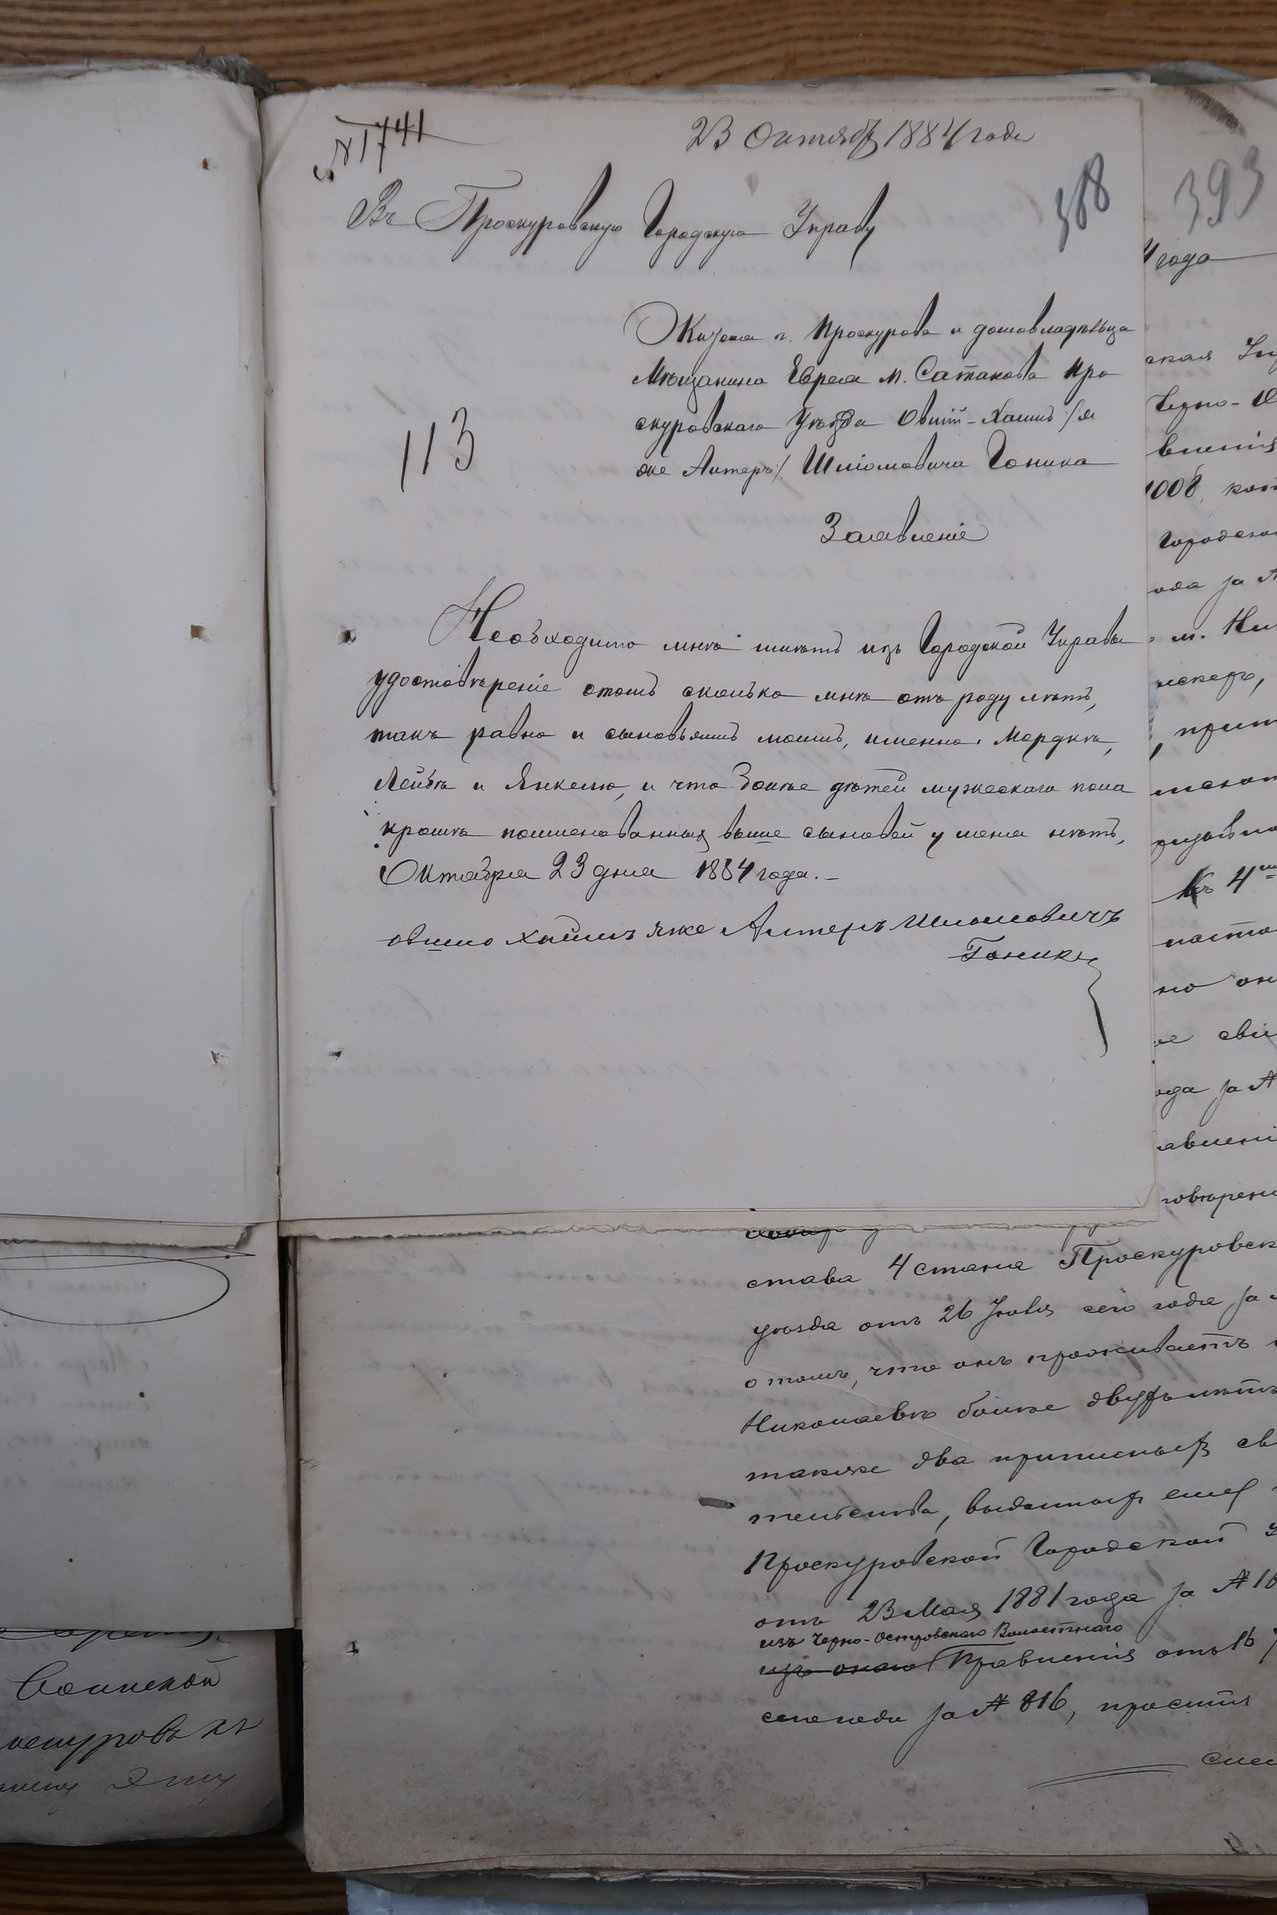 № 1741
23 Октября 1884 года
388
Въ Проскуровскую Городскую Управу
Жителя г. Проскурова и домовладѣльца
Мѣщанина Еврея м. Сатанова Про
скуровскаго Уѣзда Хаимъ /я
же Алтеръ/. Шліомовича Гоника
113
Заявленіе
Необходимо мнѣ имѣть изъ Городской Управы
удостовѣреніе отомъ сколько мнѣ отъ роду лѣтъ,
такъ равно и сыновьямъ моимъ, именно: Мордкѣ,
Лейбѣ и Янкелю, и что болѣе дѣтей мужескаго пола
кромѣ поименованныхъ выше сыновей у меня нѣтъ,
Октября 23 дня 1884 года. –
овшію хаймъ яже Алтеръ Шліомовичъ
Гоникъ
393
года
ская
Черно-О
вленія
1008, кот
Городско
ода за №
м. Ни
, прит
4
ода за №
става 4 стана Проскуровск
уѣзда отъ 26 Іюля сего года за
о томъ, что онъ проживаетъ
Николаевкѣ болѣе двухъ лѣтъ
также два приписныхъ св
тельства, выданныхъ ему
Проскуровской Городской У
отъ 23 Мая 1881 года за № 16
изъ Черно-Островскаго Волостнаго
изъ онаго Правленія отъ 16
сего года за № 816, проситъ
Воинской